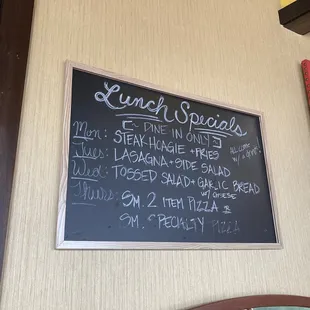 Lunch Specials
[~ DINE IN ONLY ~]
Mon: STEAK HOAGIE + FRIES
Tues: LASAGNA + SIDE SALAD
Wed: TOSSED SALAD + GARLIC BREAD
W/ CHEESE
Thurs: SM. 2 ITEM PIZZA
SM. SPECIALTY PIZZA